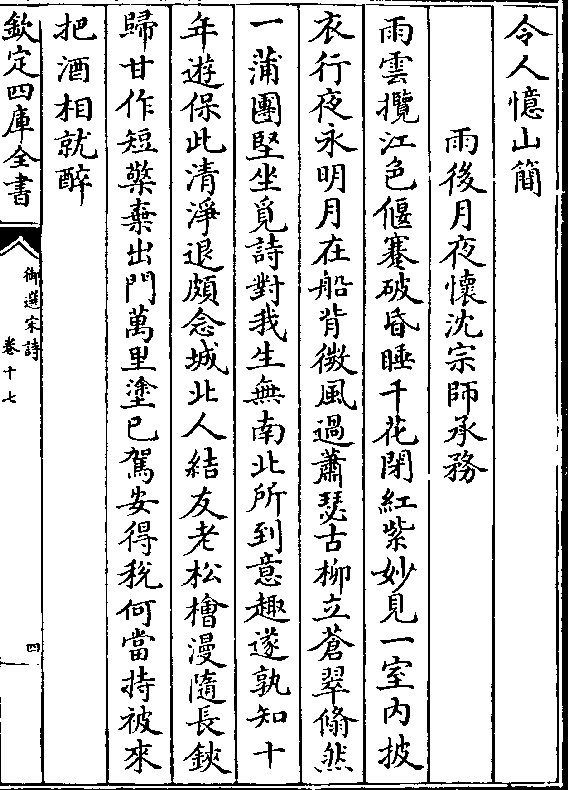 令人憶山簡
雨後月夜懷沈宗師承務
雨雲攬江色偃蹇破昏睡千花閉紅紫妙見一室内披
衣行夜永明月在船背微風過蕭瑟古柳立蒼翠翛然
一蒲團堅坐覓詩對我生無南北所到意趣遂孰知十
年遊保此清淨退頗念城北人結友老松檜漫隨長鋏
歸甘作短檠棄出門萬里塗已駕安得税何當持被來
把酒相就醉
欽定四庫全書
御選宋詩
卷十七
四